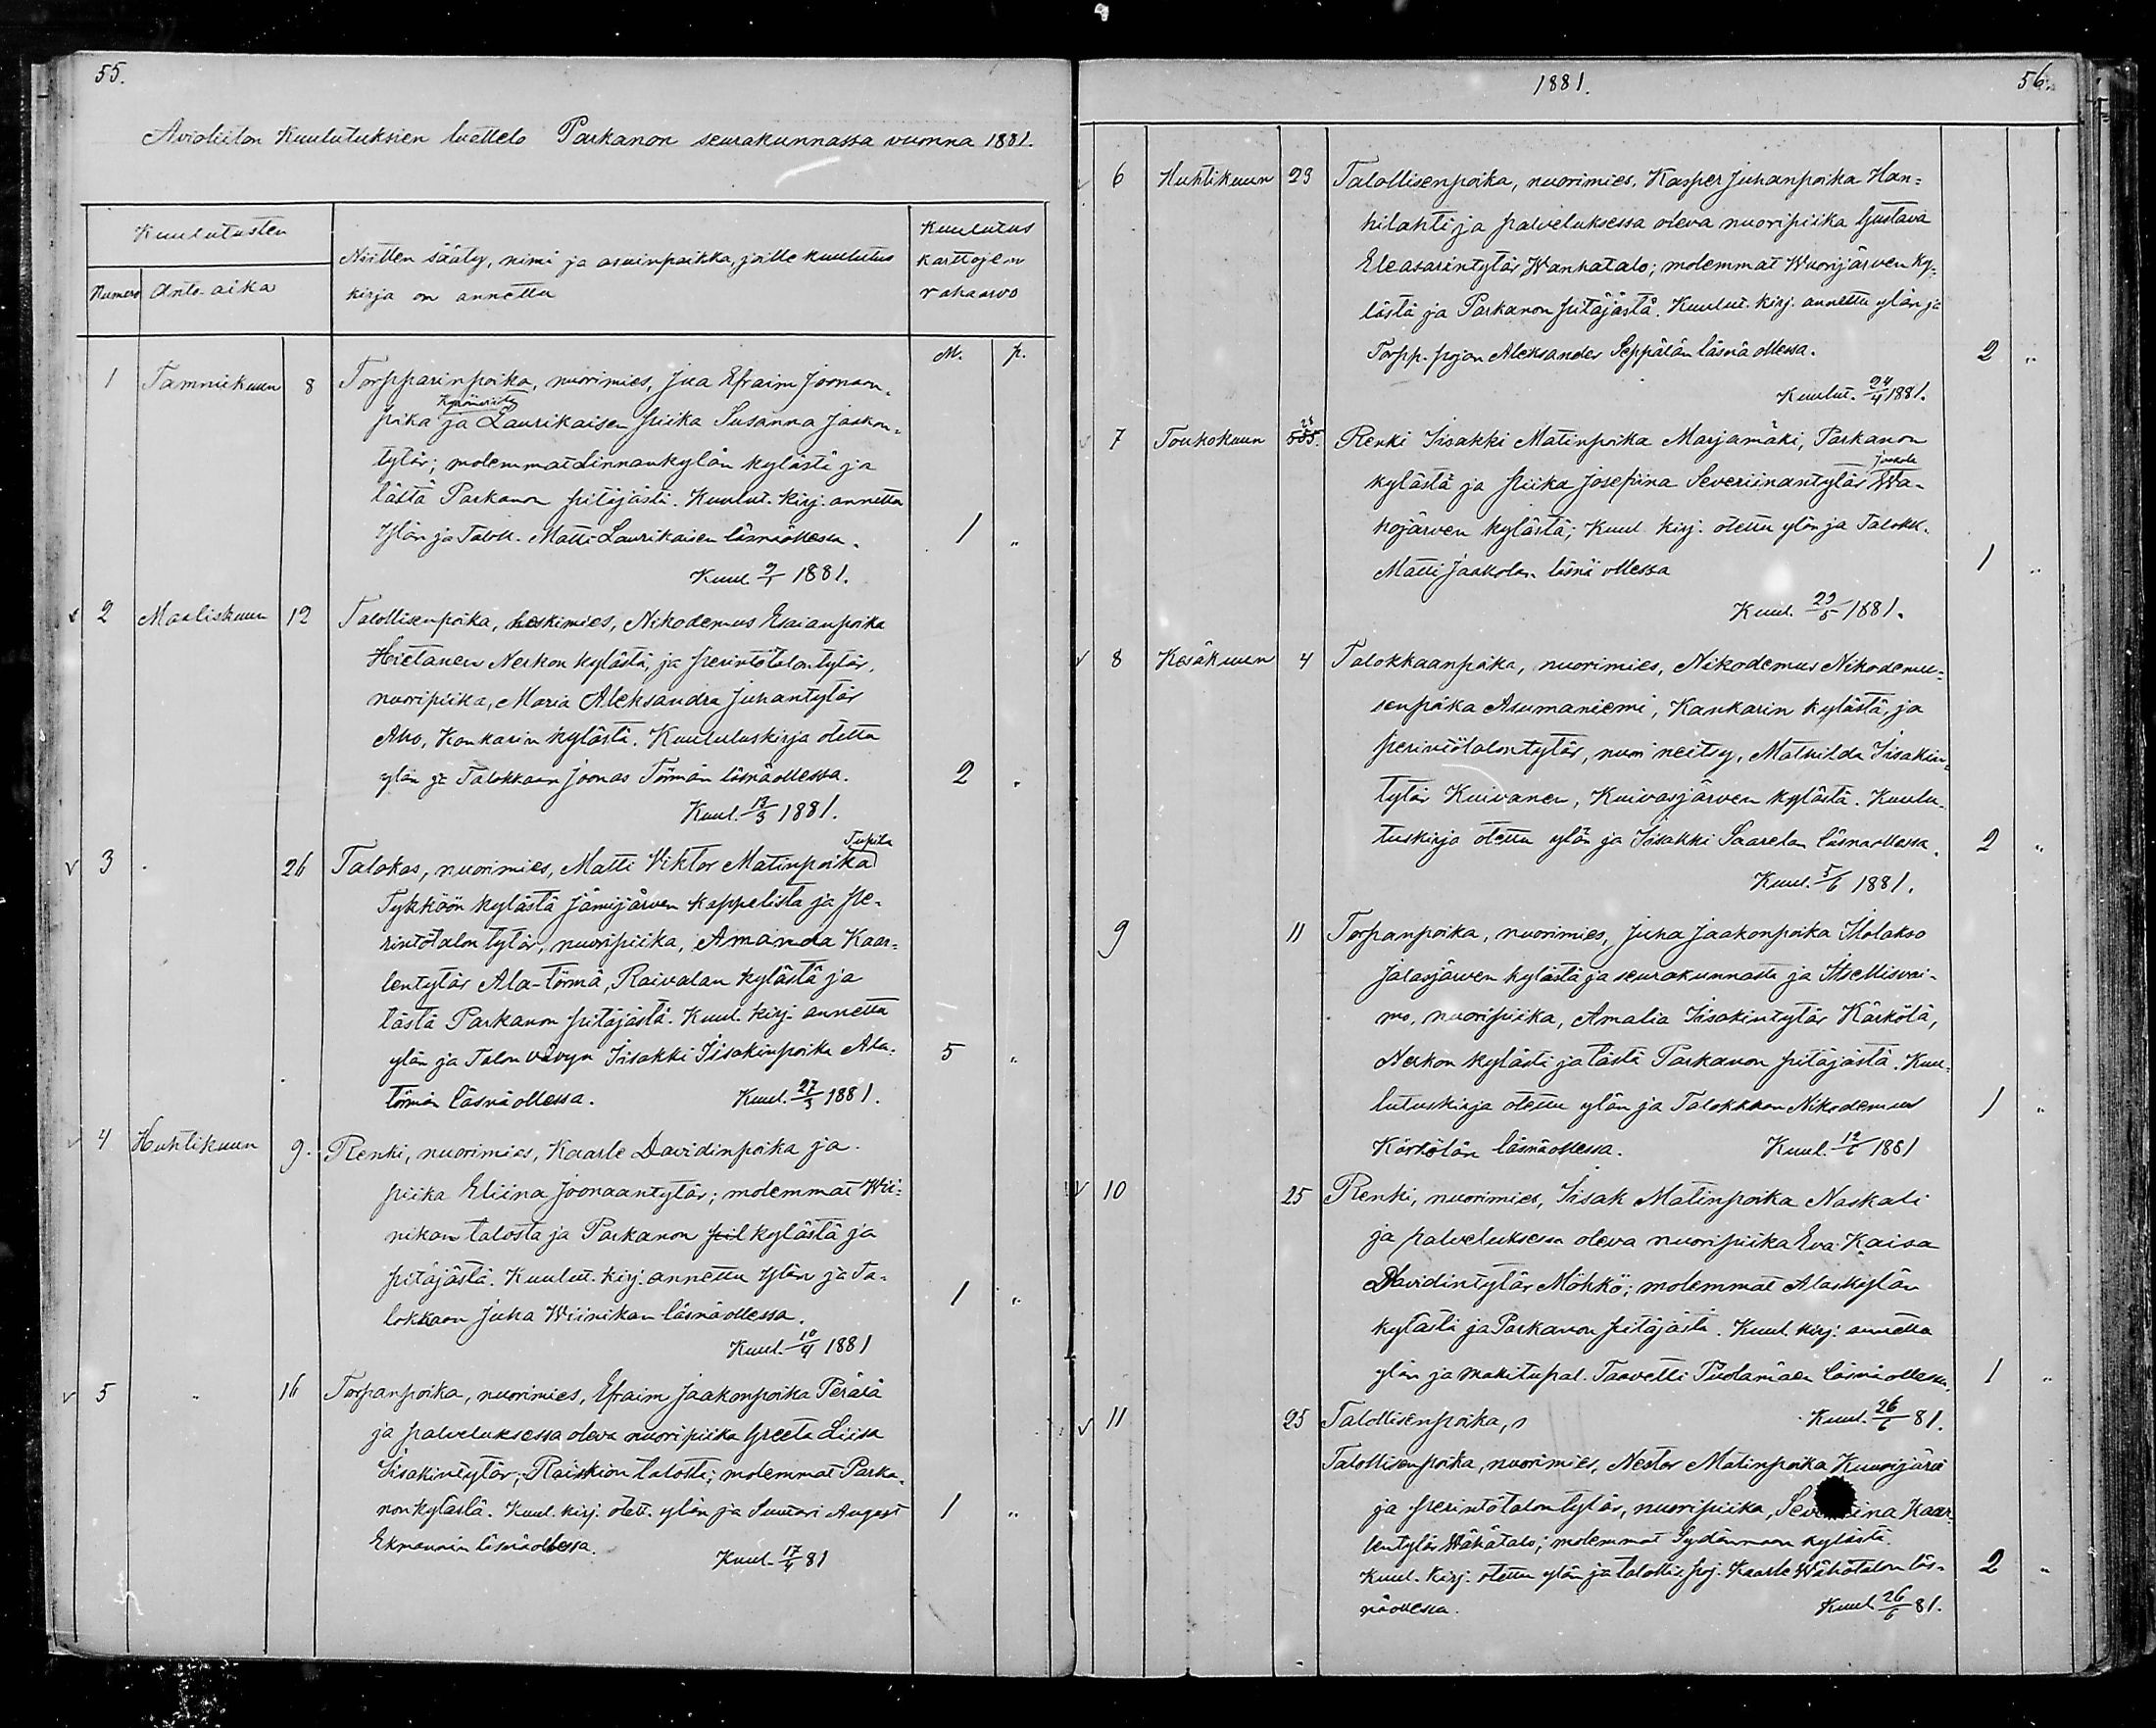 55.
Avioliiton Kuulutuksien luettelo Parkanon seurakunnassa vuonna 1881.
Kuulutusten
Numero Anto-aika
Niitten sääty, nimi ja asuinpaikka, joille kuulutus
kirja on annettu
Kuulutus
karttojen
rahaarvo
M. p.
1 Tammikuun 8 Torpparinpoika, nuorimies, Jua Efraim Joonaan-
poika ja Laurikaisen piika Susanna Jaakon-
tytär; molemmat Linnankylän kylästä ja
tästä Parkanon pitäjästä. Kuulut. kirj. annettu
Ylön ja Taloll. Matti Laurikaisen läsnäollessa. 1 "
Kuul. 9/1 1881.
2 Maaliskuun 12 Talollisenpoika, leskimies, Nikodemus Esaianpoika
Hietanen Nerkon kylästä, ja perintötalontytär,
nuoripiika, Maria Aleksandra Juhantytär
Aho, Kankarin kylästä. Kuulutuskirja otettu
ylön ja Talokkaan Joonas Törmän läsnäollessa. 2 "
Kuul. 13/3 1881.
3 " 26 Talokas, nuorimies, Matti Viktor Matinpoika Tupila
Tykköön kylästä Jämijärven kappelista ja pe-
rintötalon tytär, nuoripiika, Amanda Kaar-
lentytär Ala-törmä, Raivalan kylästä ja
tästä Parkanon pitäjästä. Kuul. kirj. annettu
ylön ja Talon vävyn Iisakki Iisakinpoika Ala- 5 "
törmän läsnäollessa. Kuul. 27/3 1881.
4 Huhtikuun 9. Renki, nuorimies, Kaarle Davidinpoika ja
piika Eliina Joonaantytär; molemmat Wii-
nikan talosta ja Parkanon pit kylästä ja
pitäjästä. Kuulut. kirj. annettu Ylön ja Ta-
lokkaan Juha Wiinikan läsnäollessa. 1 "
Kuul. 10/4 1881
5 " 16 Torpanpoika, nuorimies, Efraim Jaakonpoika Perälä
ja palveluksessa oleva nuoripiika Greeta Liisa
Iisakintytär, Raiskion talosta; molemmat Parka-
non kylästä. Kuul. kirj. otett. ylön ja Suutari August 1 "
Ekmannin läsnäollessa. Kuul. 17/4 81
1881. 56.
6 Huhtikuun 23 Talollisenpoika, nuorimies, Kasper Juhanpoika Han-
hilahti ja palveluksessa oleva nuoripiika Gustava
Eleasarintytär Wanhatalo; molemmat Wuorijärven ky-
lästä ja Parkanon pitäjästä. Kuulut. kirj. annettu ylön ja
Torpp. pojan Aleksander Seppälän läsnä ollessa. 2 "
Kuulut. 24/4 1881.
7 Toukokuun 28 Renki Iisakki Matinpoika Marjamäki, Parkanon
kylästä ja piika Josefiina Severiinantytär Jaakola Wa-
hojärven kylästä; Kuul. kirj. otettu ylön ja Talokk.
Matti Jaakolan läsnä ollessa 1 "
Kuul. 29/5 1881.
8 Kesäkuun 4 Talokkaanpoika, nuorimies, Nikodemus Nikodemu-
senpoika Asumaniemi, Kankarin kylästä, ja
perintötalontytär, nuori neitsy, Mathilda Iisakin-
tytär Kuivanen, Kuivasjärven kylästä. Kuulu-
tuskirja otettu ylön ja Iisakki Saarelan läsnäollessa. 2 "
Kuul. 5/6 1881.
9 11 Torpanpoika, nuorimies, Juha Jaakonpoika Iilolakso
Jalasjärven kylästä ja seurakunnasta ja Itsellisvai-
mo, nuoripiika, Amalia Iisakintytär Kärkölä,
Nerkon kylästä ja tästä Parkanon pitäjästä. Kuu-
lutuskirja otettu ylön ja Talokkaan Nikodemus 1 "
Kärkölän läsnäollessa. Kuul. 12/6 1881
10 25 Renki, nuorimies, Iisak Matinpoika Naskali
ja palveluksessa oleva nuoripiika Eva Kaisa
Davidintytär Möhkö; molemmat Alaskylän
kylästä ja Parkanon pitäjästä. Kuul. kirj. annettu
ylön ja mäkitupal. Taavetti Puolamäen läsnäollessa. 1 "
11 25 Talollisenpoika, n Kuul. 26/6 81.
Talollisenpoika, nuorimies, Nestor Matinpoika Kuusijärvi
ja perintötalon tytär, nuoripiika, Kaar-
lentytär Wähätalo; molemmat Sydänmaan kylästä.
Kuul. kirj. otettu ylön ja talollis. poj. Kaarle Wähätalon läs- 2 "
näollessa. Kuul 26/6 81.